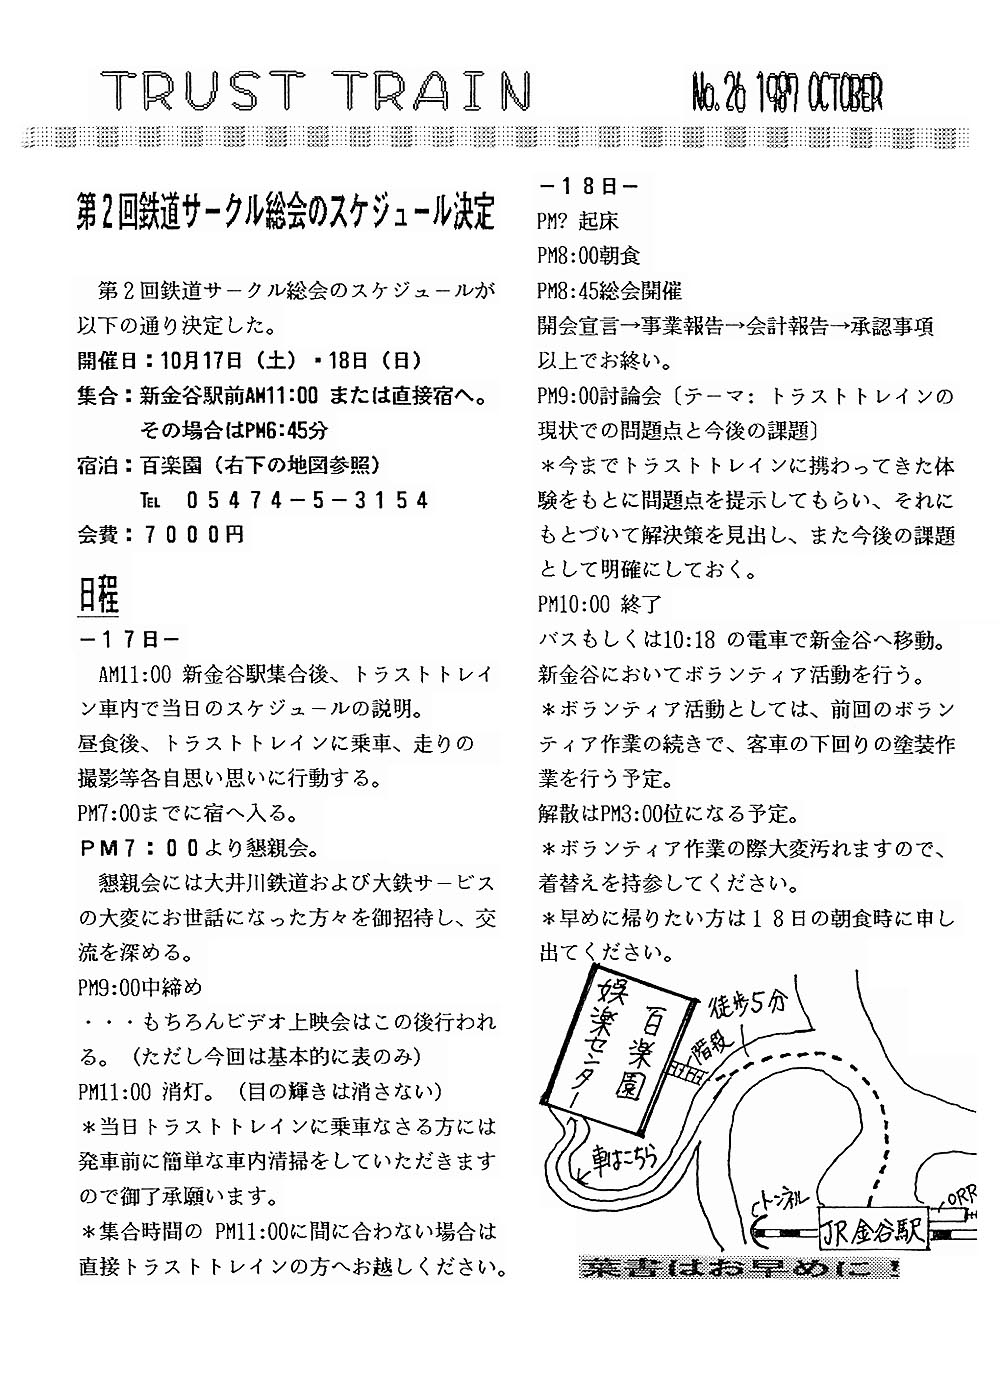 TRUST TRAIN
No. 26 1987 OCTOBER
第2回鉄道サークル総会のスケジュール決定
第2回鉄道サークル総会のスケジュールが
以下の通り決定した。
開催日：10月17日（土）・18日（日）
集合：新金谷駅前AM11:00 または直接宿へ。
その場合はPM6:45分
宿泊：百楽園（右下の地図参照）
℡ ０５４７４－５－３１５４
会費：７０００円
日程
－１７日－
AM11:00 新金谷駅集合後、トラストトレイ
ン車内で当日のスケジュールの説明。
昼食後、トラストトレインに乗車、走りの
撮影等各自思い思いに行動する。
PM7:00までに宿へ入る。
ＰＭ７：００より懇親会。
懇親会には大井川鉄道および大鉄サービス
の大変にお世話になった方々を御招待し、交
流を深める。
PM9:00中締め
・・・もちろんビデオ上映会はこの後行われ
る。（ただし今回は基本的に表のみ）
PM11:00 消灯。（目の輝きは消さない）
＊当日トラストトレインに乗車なさる方には
発車前に簡単な車内清掃をしていただきます
ので御了承願います。
＊集合時間の PM11:00に間に合わない場合は
直接トラストトレインの方へお越しください。
－１８日－
PM? 起床
PM8:00朝食
PM8:45総会開催
開会宣言→事業報告→会計報告→承認事項
以上でお終い。
PM9:00討論会〔テーマ: トラストトレインの
現状での問題点と今後の課題〕
＊今までトラストトレインに携わってきた体
験をもとに問題点を提示してもらい、それに
もとづいて解決策を見出し、また今後の課題
として明確にしておく。
PM10:00 終了
バスもしくは10:18 の電車で新金谷へ移動。
新金谷においてボランティア活動を行う。
＊ボランティア活動としては、前回のボラン
ティア作業の続きで、客車の下回りの塗装作
業を行う予定。
解散はPM3:00位になる予定。
＊ボランティア作業の際大変汚れますので、
着替えを持参してください。
＊早めに帰りたい方は１８日の朝食時に申し
出てください。
百楽園
娯楽センター
階段
徒歩5分
車はこちら
トンネル
JR金谷駅
ORR
葉書はお早めに！